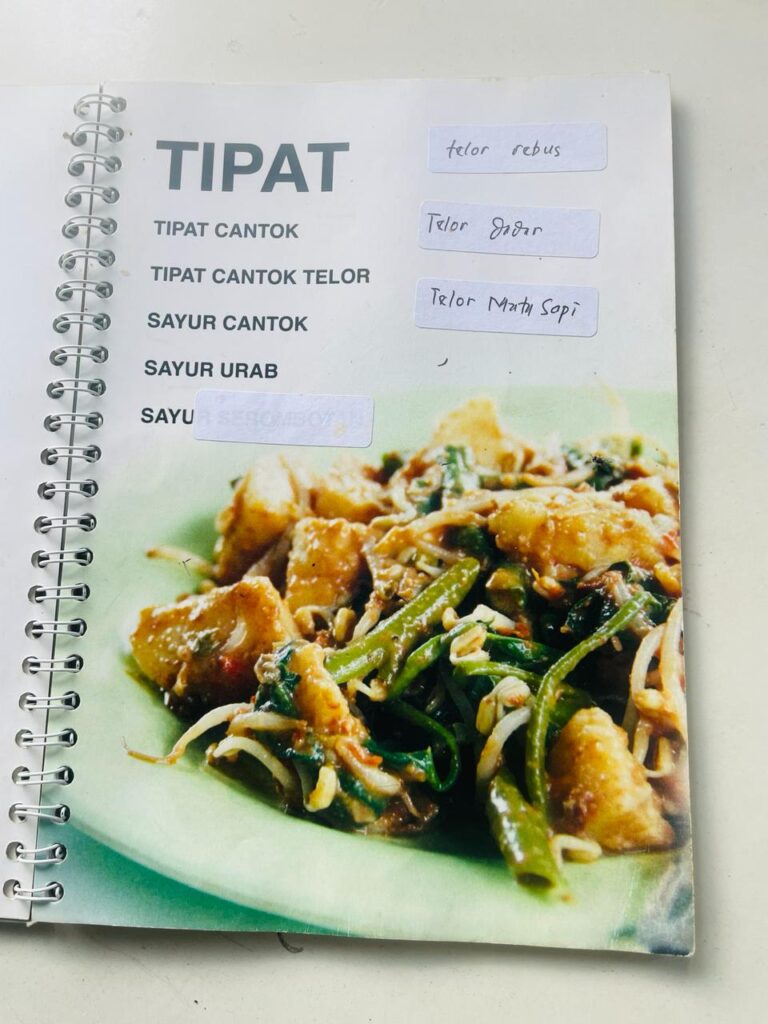 TIPAT
TIPAT CANTOK
TIPAT CANTOK TELOR
SAYUR CANTOK
SAYUR URAB
SAYUR SEROMBOTAN
telor rebus
Telor dadar
Telor Mata Sapi